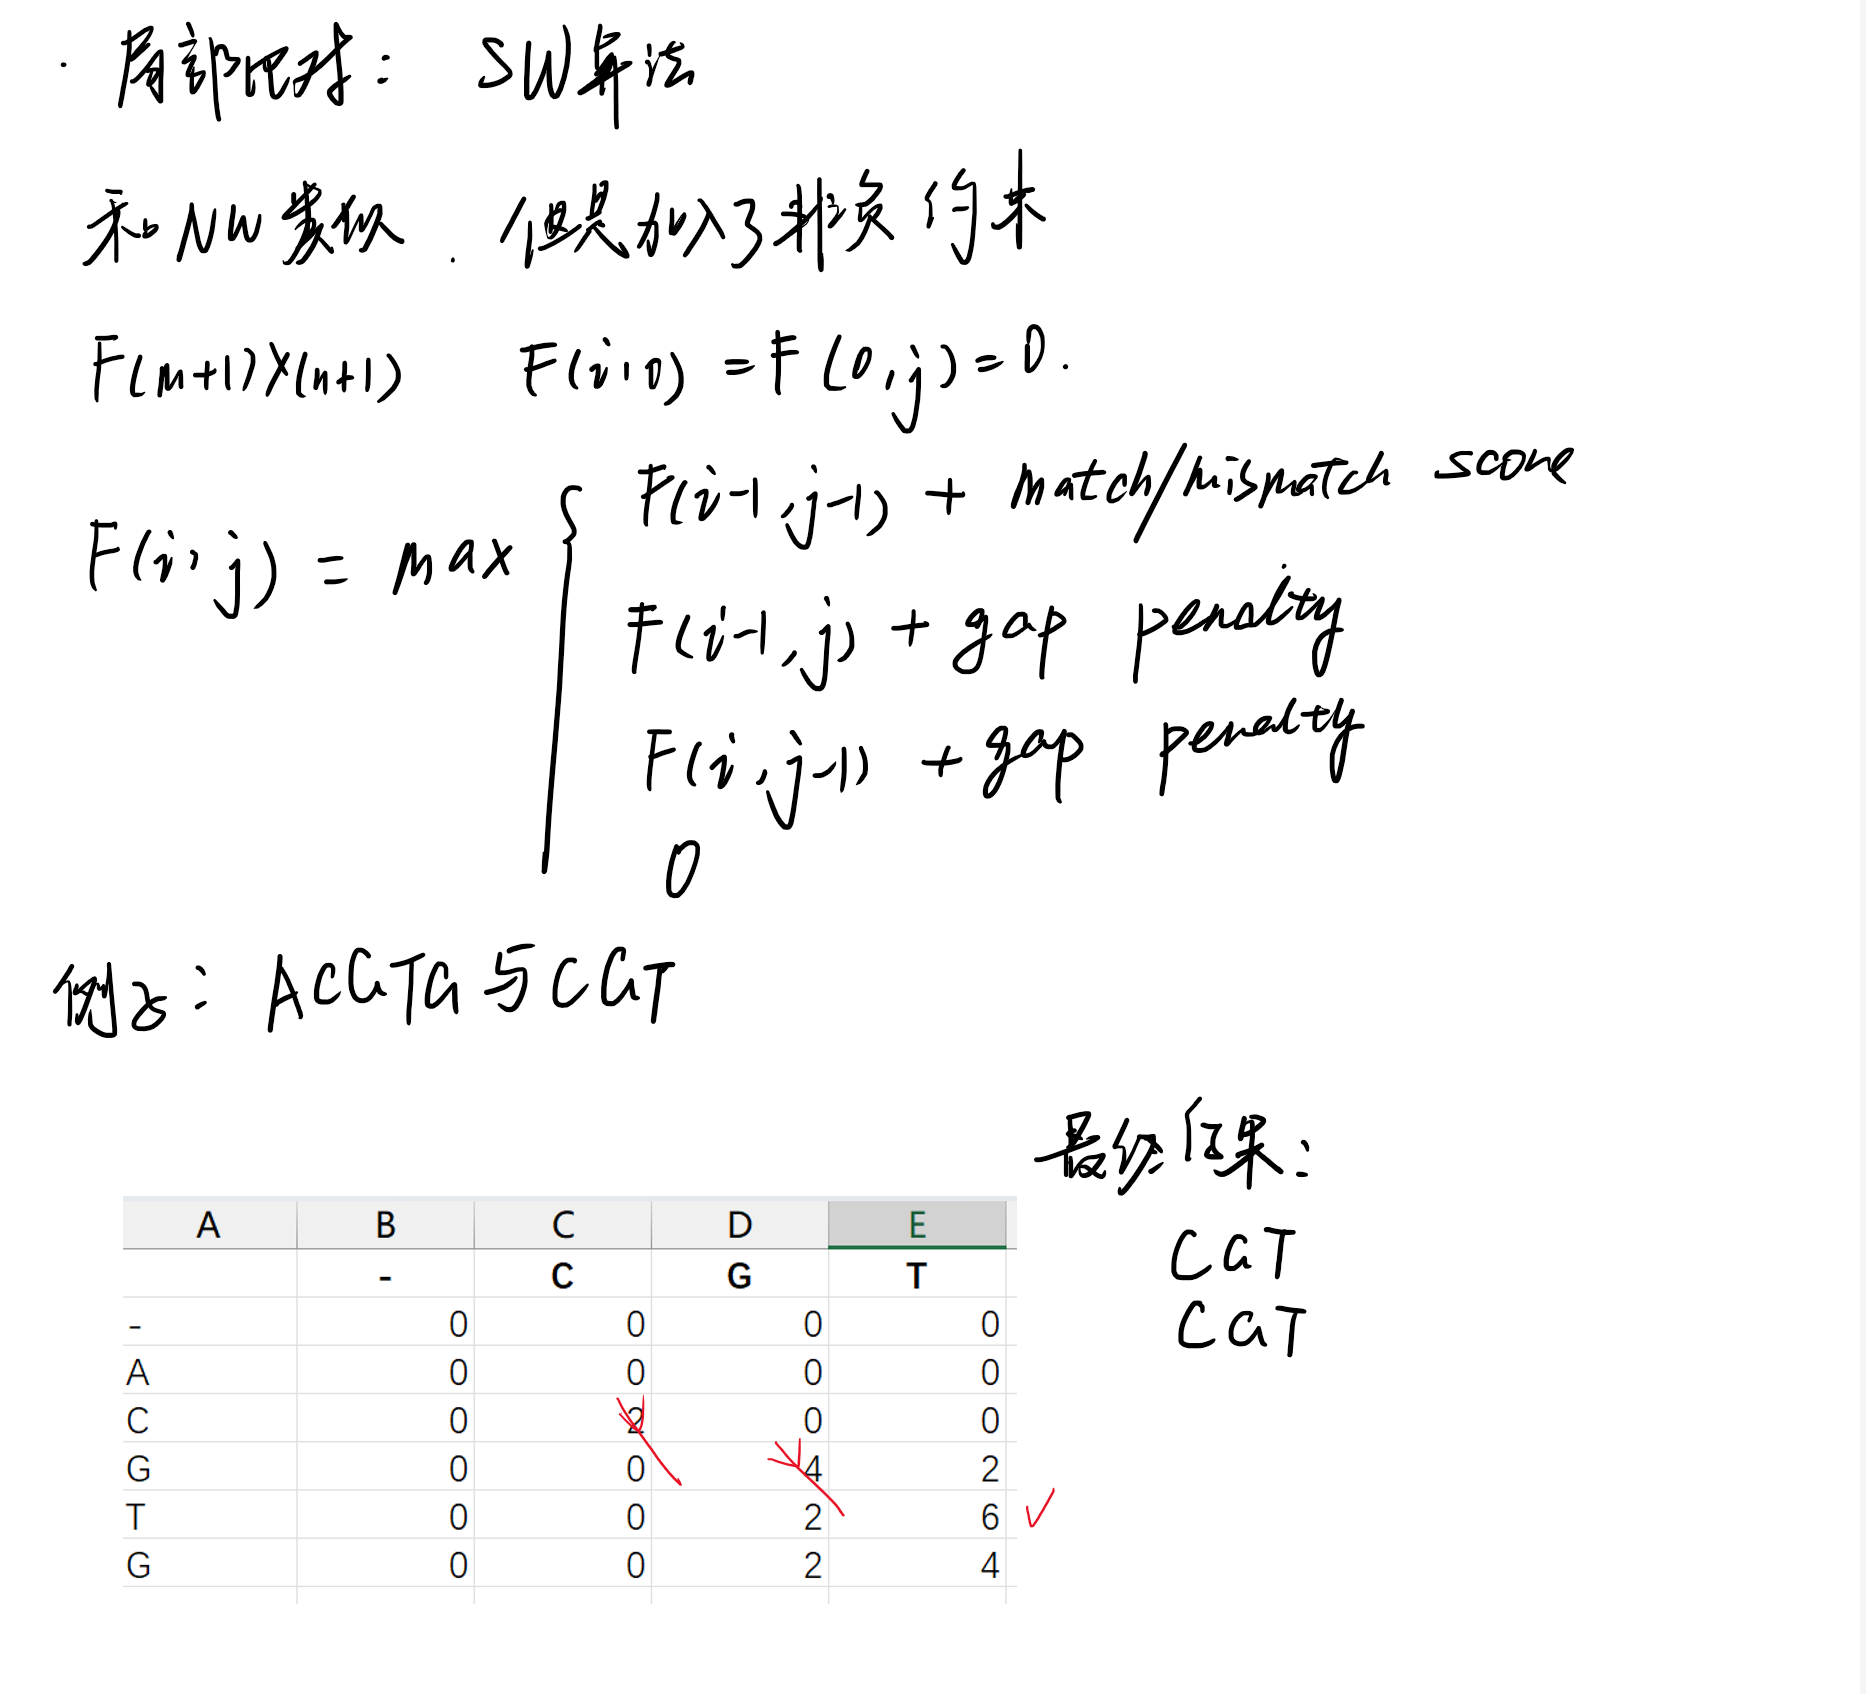 · 局部比对： SW算法
和NW类似 . 但是加入了非负约束
F(m+1)×(n+1) F(i,0) = F(0,j)=0.
F(i,j) = max { F(i-1,j-1) + match/mismatch score
F(i-1,j) + gap penalty
F(i,j-1) + gap penalty
0
例子： ACGTG与CGT
最终结果：
CGT
CGT
A B C D E
- C G T
- 0 0 0 0
A 0 0 0 0
C 0 2 0 0
G 0 0 4 2
T 0 0 2 6 ✓
G 0 0 2 4